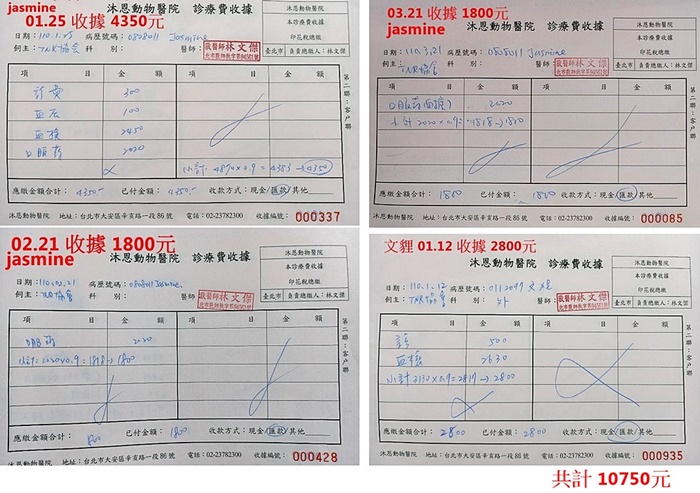 jasmine
01.25 收據 4350元
沐恩動物醫院 診療費收據
沐恩動物醫院
本診療費收據
印花稅總繳
臺北市 負責總繳人：林文傑
日期：110.1.25 病歷號碼：0808011 Jasmine
飼主：TNR協會 科 別： 醫師：獸醫師林文傑
項 目 金 額 項 目 金 額
計費 300
血辰 100
血檢 2450
口服藥 2020
小計：4870×0.9=4383→4350
應繳金額合計：4350 已付金額：4350 收款方式：現金/匯款/其他
沐恩動物醫院 地址：台北市大安區辛亥路一段86號 電話：02-23782300 收據編號：000337
第二聯：客戶聯
03.21 收據 1800元
jasmine
沐恩動物醫院 診療費收據
沐恩動物醫院
本診療費收據
印花稅總繳
臺北市 負責總繳人：林文傑
日期：110.3.21 病歷號碼：0808011 Jasmine
飼主：TNR協會 科 別： 醫師：獸醫師林文傑
項 目 金 額 項 目 金 額
口服藥 2020
小計 2020×0.9=1818→1800
應繳金額合計：1800 已付金額：1800 收款方式：現金/匯款/其他
沐恩動物醫院 地址：台北市大安區辛亥路一段86號 電話：02-23782300 收據編號：000085
第二聯：客戶聯
02.21 收據 1800元
jasmine
沐恩動物醫院 診療費收據
沐恩動物醫院
本診療費收據
印花稅總繳
臺北市 負責總繳人：林文傑
日期：110.02.21 病歷號碼：0808011 Jasmine
飼主：TNR協會 科 別： 醫師：獸醫師林文傑
項 目 金 額 項 目 金 額
口服藥 2020
小計：2020×0.9=1818→1800
應繳金額合計：1800 已付金額：1800 收款方式：現金/匯款/其他
沐恩動物醫院 地址：台北市大安區辛亥路一段86號 電話：02-23782300 收據編號：000428
第二聯：客戶聯
文貍 01.12 收據 2800元
沐恩動物醫院 診療費收據
沐恩動物醫院
本診療費收據
印花稅總繳
臺北市 負責總繳人：林文傑
日期：110.1.12 病歷號碼：0112099 文貍
飼主：TNR協會 科 別： 醫師：獸醫師林文傑
項 目 金 額 項 目 金 額
500
血檢 2630
小計 3130×0.9=2817→2800
應繳金額合計：2800 已付金額：2800 收款方式：現金/匯款/其他
沐恩動物醫院 地址：台北市大安區辛亥路一段86號 電話：02-23782300 收據編號：000935
第二聯：客戶聯
共計 10750元